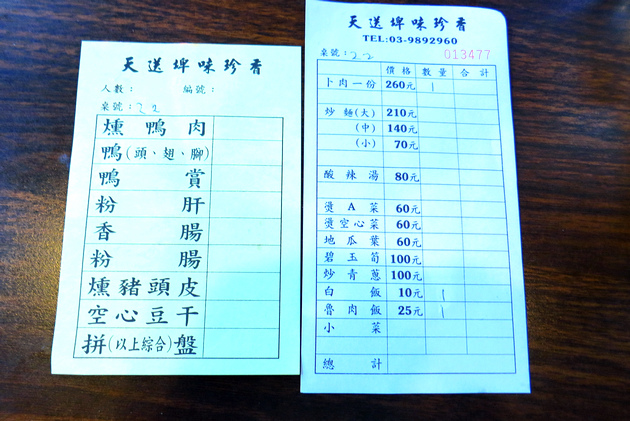 天送埤味珍香
人數： 編號：
桌號：22
燻鴨肉
鴨(頭、翅、腳)
鴨賞
粉肝
香腸
粉腸
燻豬頭皮
空心豆干
拼(以上綜合)盤
天送埤味珍香
TEL:03-9892960
桌號：22 013477
價格 數量 合計
卜肉一份 260元 1
炒麵(大) 210元
(中) 140元
(小) 70元
酸辣湯 80元
燙A菜 60元
燙空心菜 60元
地瓜葉 60元
碧玉筍 100元
炒青蔥 100元
白飯 10元 1
魯肉飯 25元 1
小菜
總計